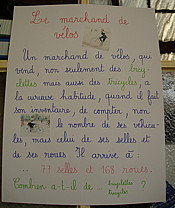 Le marchand de
vélos
Un marchand de vélos, qui
vend, non seulement des bicy-
clettes mais aussi des tricycles, a
la curieuse habitude, quand il fait
son inventaire, de compter, non
le nombre de ses véhicu-
les, mais celui de ses selles et
de ses roues. Il arrive à
... 77 selles et 168 roues.
Combien a-t-il de bicyclettes ?
tricycles